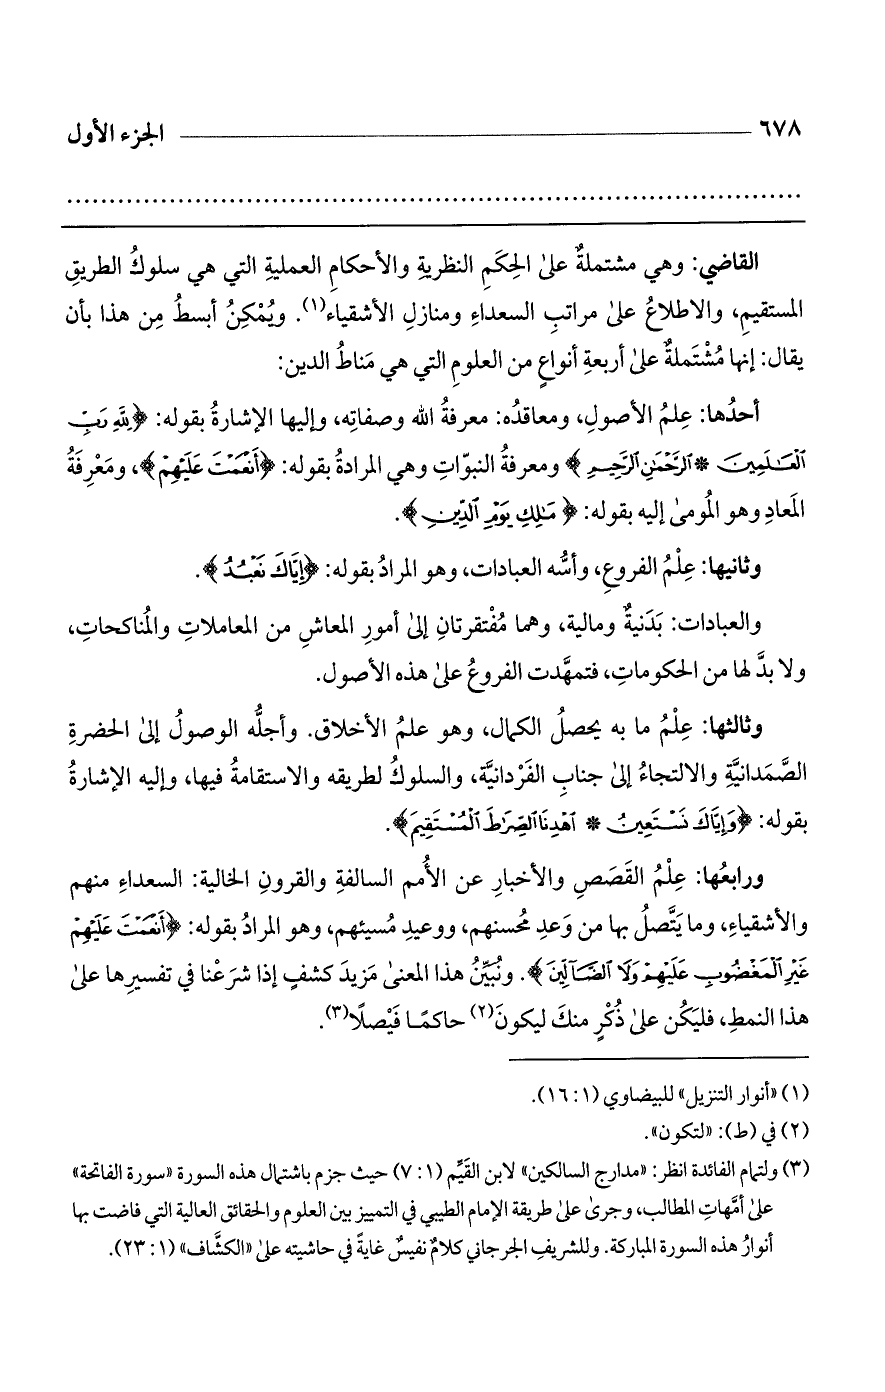 ٦٧٨ الجزء الأول
القاضي: وهي مشتملةٌ علىٰ الحِكَمِ النظريةِ والأحكامِ العمليةِ التي هي سلوكُ الطريقِ
المستقيمِ، والاطلاعُ علىٰ مراتبِ السعداءِ ومنازلِ الأشقياء(١). ويُمْكِنُ أبسطُ مِن هذا بأن
يقال: إنها مُشْتَملةٌ علىٰ أربعةِ أنواعٍ من العلومِ التي هي مَناطُ الدين:
أحدُها: عِلمُ الأصولِ، ومعاقدُه: معرفةُ الله وصفاتِه، وإليها الإشارةُ بقوله: ﴿لِلَّهِ رَبِّ
الْعَٰلَمِينَ * الرَّحْمَٰنِ الرَّحِيمِ﴾ ومعرفةُ النبوّاتِ وهي المرادةُ بقوله: ﴿أَنْعَمْتَ عَلَيْهِمْ﴾، ومَعْرِفَةُ
المَعادِ وهو المُومىٰ إليه بقوله: ﴿مَٰلِكِ يَوْمِ الدِّينِ﴾.
وثانيها: عِلْمُ الفروعِ، وأسُّه العبادات، وهو المرادُ بقوله: ﴿إِيَّاكَ نَعْبُدُ﴾.
والعبادات: بَدَنيةٌ ومالية، وهما مُفْتقرتانِ إلىٰ أمورِ المعاشِ من المعاملاتِ والمُناكحاتِ،
ولا بدَّ لها من الحكوماتِ، فتمهَّدت الفروعُ علىٰ هذه الأصول.
وثالثها: عِلْمُ ما به يحصلُ الكمال، وهو علمُ الأخلاق. وأجلُّه الوصولُ إلىٰ الحضرةِ
الصَّمَدانيَّةِ والالتجاءُ إلىٰ جنابِ الفَرْدانيَّة، والسلوكُ لطريقه والاستقامةُ فيها، وإليه الإشارةُ
بقوله: ﴿وَإِيَّاكَ نَسْتَعِينُ * اهْدِنَا الصِّرَٰطَ الْمُسْتَقِيمَ﴾.
ورابعُها: عِلْمُ القَصَصِ والأخبارِ عن الأُمم السالفةِ والقرونِ الخالية: السعداءِ منهم
والأشقياءِ، وما يَتَّصلُ بها من وَعدِ مُحسنهم، ووعيدِ مُسيئهم، وهو المرادُ بقوله: ﴿أَنْعَمْتَ عَلَيْهِمْ
غَيْرِ الْمَغْضُوبِ عَلَيْهِمْ وَلَا الضَّآلِّينَ﴾. ونُبيِّنُ هذا المعنىٰ مَزيدَ كشفٍ إذا شرَعْنا في تفسيرِها علىٰ
هذا النمطِ، فليَكُن علىٰ ذُكْرٍ منكَ ليكونَ(٢) حاكمًا فَيْصلًا(٣).
(١) «أنوار التنزيل» للبيضاوي (١: ١٦).
(٢) في (ط): «لتكون».
(٣) ولتمام الفائدة انظر: «مدارج السالكين» لابن القَيِّم (١: ٧) حيث جزم باشتمال هذه السورة «سورة الفاتحة»
علىٰ أمَّهاتِ المطالب، وجرىٰ علىٰ طريقة الإمام الطيبي في التمييز بين العلوم والحقائق العالية التي فاضت بها
أنوارُ هذه السورة المباركة. وللشريفِ الجرجاني كلامٌ نفيسٌ غايةً في حاشيته علىٰ «الكشَّاف» (١: ٢٣).